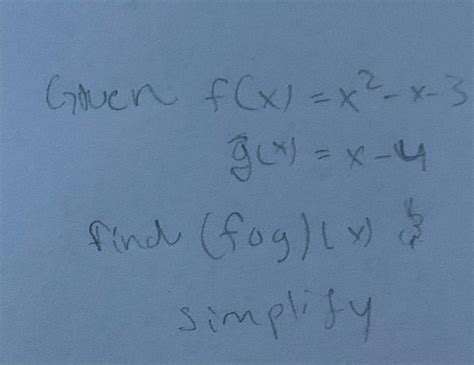 Given f(x) = x² - x - 3
g(x) = x - 4
find (fog)(x) &
simplify